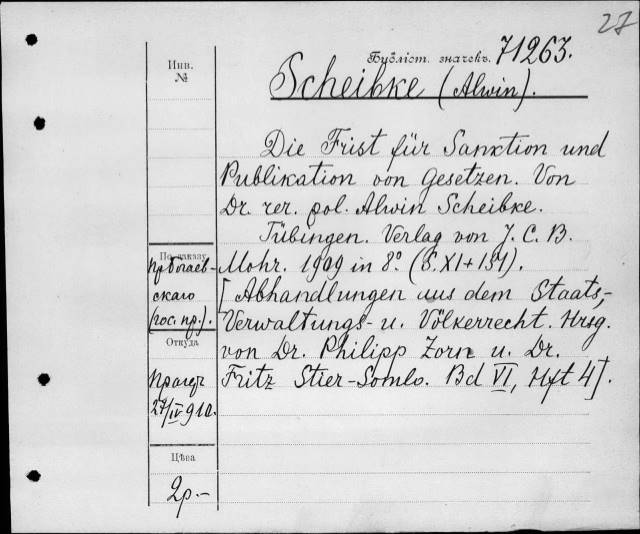 27
Бубліст. значекъ. 71263.
Инв.
№
Scheibke (Alwin).
Die Frist für Sanktion und
Publikation von Gesetzen. Von
Dr. rer. pol. Alwin Scheibke.
Tübingen. Verlag von J. C. B.
Mohr. 1909 in 8° (S. XI+151).
[Abhandlungen aus dem Staats-,
Verwaltungs- u. Völkerrecht. Hrsg.
von Dr. Philipp Zorn u. Dr.
Fritz Stier-Somlo. Bd VI, Hft 4].
По заказу
скаго
(гос. пр.).
Откуда
Прагеръ
27/IV 910.
Цѣна
2р.-